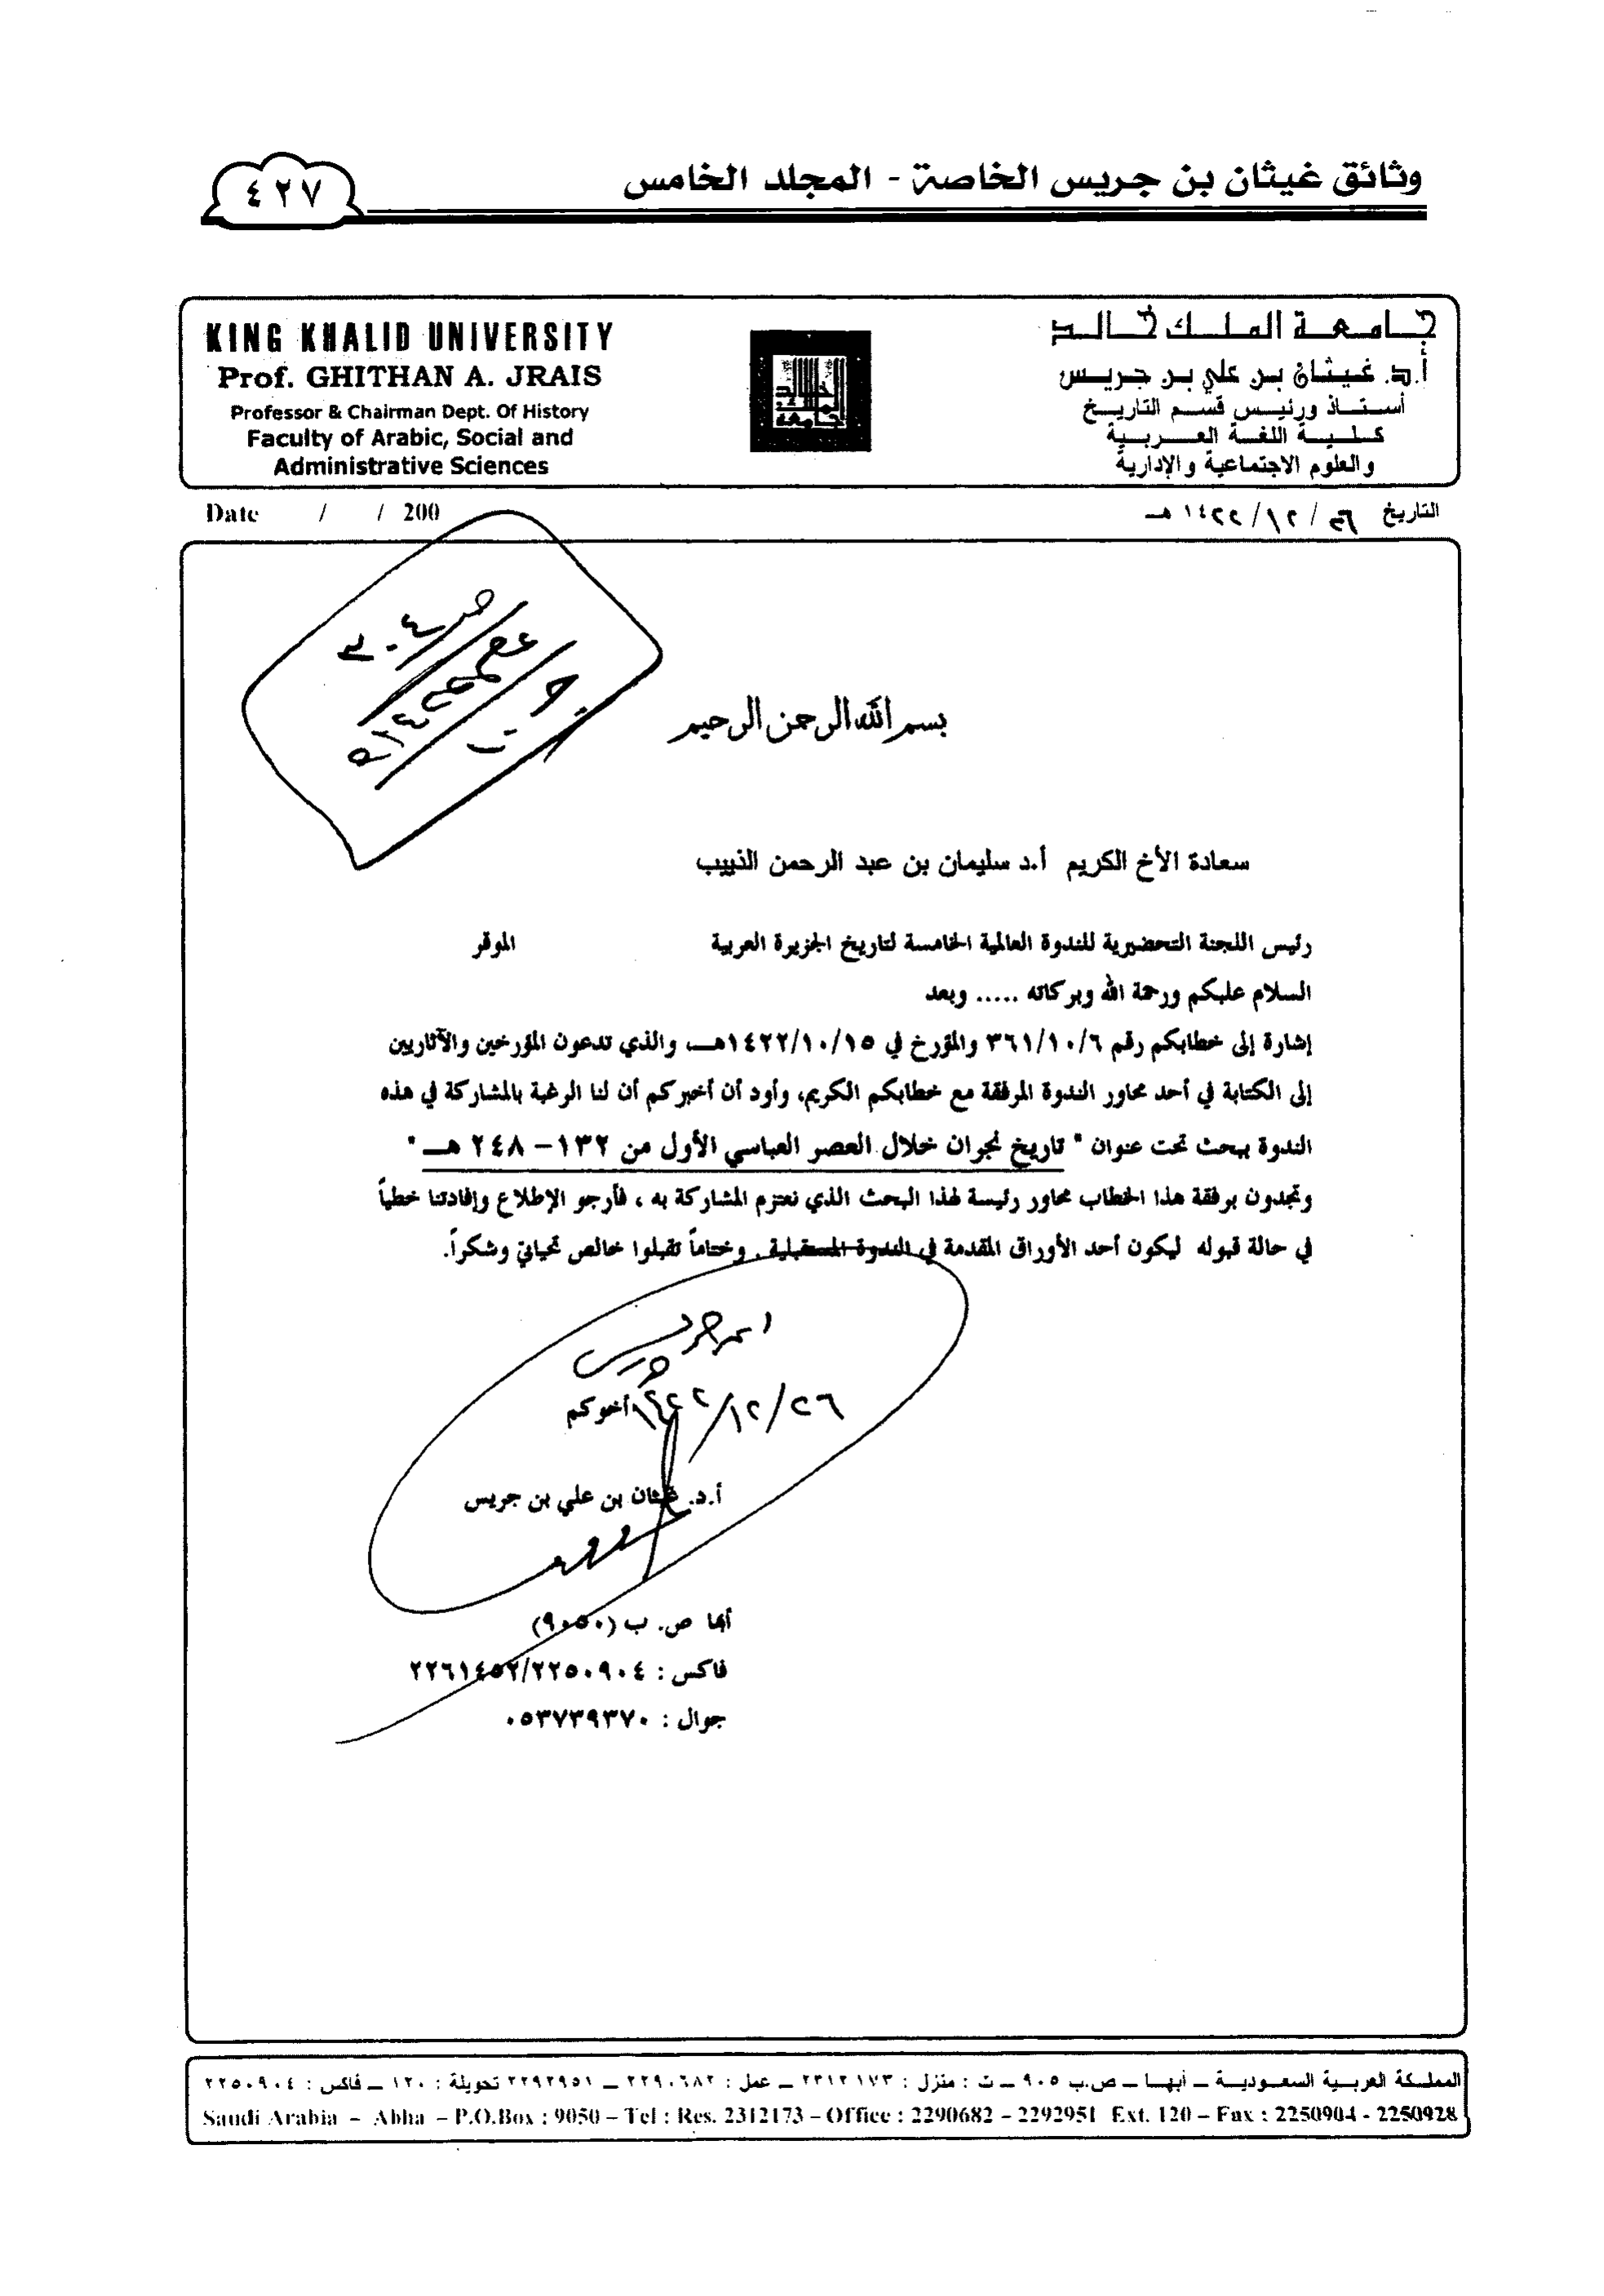 وثائق غيثان بن جريس الخاصة - المجلد الخامس
٤٢٧
KING KHALID UNIVERSITY
Prof. GHITHAN A. JRAIS
Professor & Chairman Dept. Of History
Faculty of Arabic, Social and
Administrative Sciences
جامعة الملك خالد
أ.د. غيثان بن علي بن جريس
أستاذ ورئيس قسم التاريخ
كلية اللغة العربية
والعلوم الاجتماعية والإدارية
Date / / 200
التاريخ ٢٦/١٢/١٤٢٢هـ
بسم الله الرحمن الرحيم
سعادة الأخ الكريم أ.د سليمان بن عبد الرحمن الذييب
رئيس اللجنة التحضيرية للندوة العالمية الخامسة لتاريخ الجزيرة العربية الموقر
السلام عليكم ورحمة الله وبركاته ..... وبعد
إشارة إلى خطابكم رقم ٣٦١/١٠/٦ والمؤرخ في ١٤٢٢/١٠/١٥هـ، والذي تدعون المؤرخين والآثاريين
إلى الكتابة في أحد محاور الندوة المرفقة مع خطابكم الكريم، وأود أن أخبركم أن لنا الرغبة بالمشاركة في هذه
الندوة ببحث تحت عنوان " تاريخ نجران خلال العصر العباسي الأول من ١٣٢- ٢٤٨ هـ "
وتجدون برفقة هذا الخطاب محاور رئيسة لهذا البحث الذي نعتزم المشاركة به ، فأرجو الإطلاع وإفادتنا خطياً
في حالة قبوله ليكون أحد الأوراق المقدمة في الندوة المستقبلية . وختاماً تقبلوا خالص تحياتي وشكراً.
٢٦/١٢/١٤٢٢
أخوكم
أ.د. غيثان بن علي بن جريس
أبها ص. ب (٩٠٥٠)
فاكس : ٢٢٦١٤٥٢/٢٢٥٠٩٠٤
جوال : ٠٥٣٧٣٩٣٧٠
المملكة العربية السعودية – أبها – ص.ب ٩٠٥ – ت : منزل : ٢٣١٢١٧٣ – عمل : ٢٢٩٠٦٨٢ – ٢٢٩٢٩٥١ تحويلة : ١٢٠ – فاكس : ٢٢٥٠٩٠٤
Saudi Arabia – Abha – P.O.Box : 9050 – Tel : Res. 2312173 – Office : 2290682 – 2292951 Ext. 120 – Fax : 2250904 - 2250928